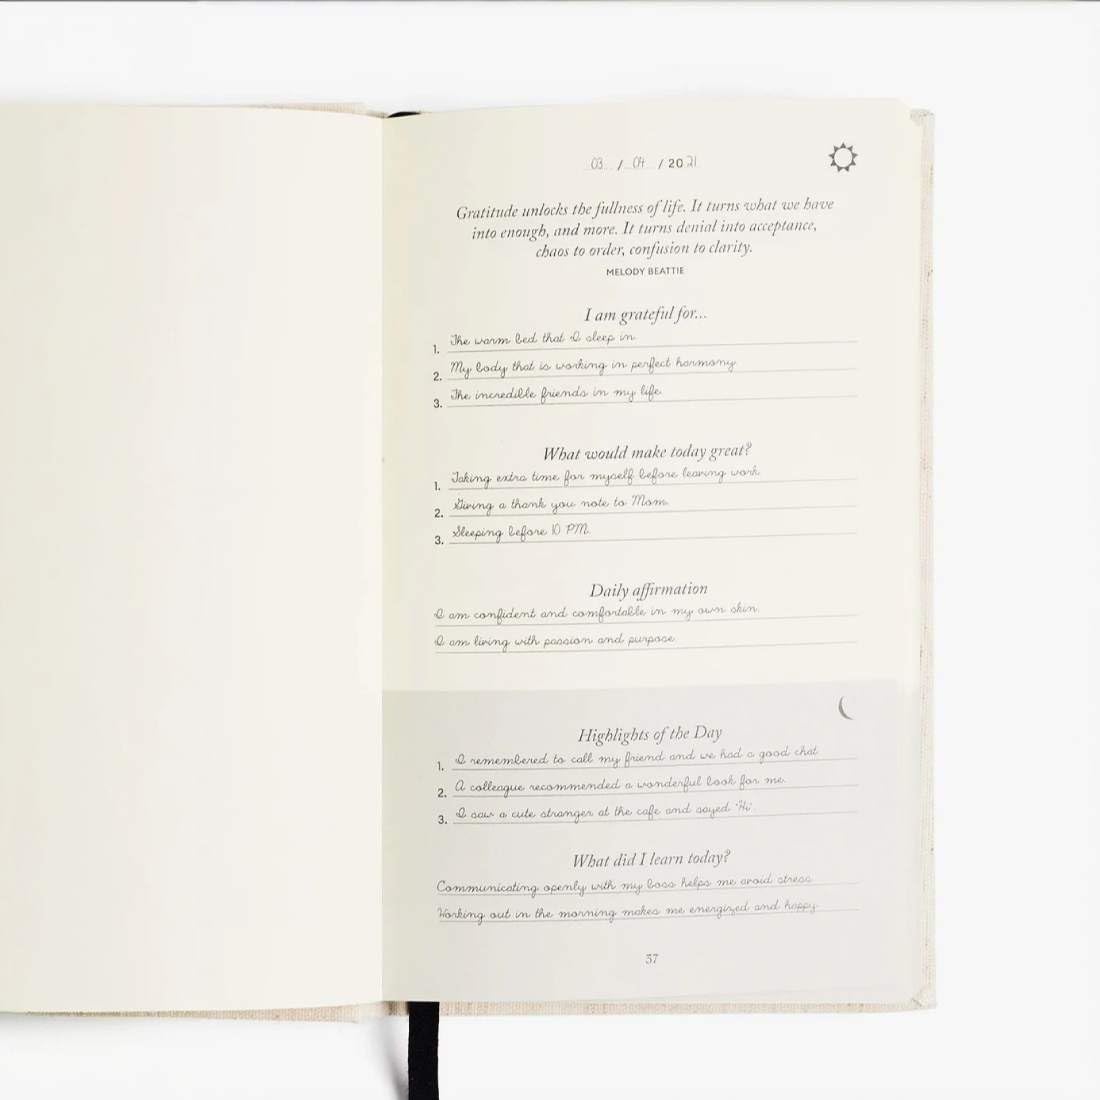 03 / 04 / 2021
Gratitude unlocks the fullness of life. It turns what we have
into enough, and more. It turns denial into acceptance,
chaos to order, confusion to clarity.
MELODY BEATTIE
I am grateful for...
1. The warm bed that I sleep in.
2. My body that is working in perfect harmony.
3. The incredible friends in my life.
What would make today great?
1. Taking extra time for myself before leaving work.
2. Giving a thank you note to Mom.
3. Sleeping before 10 PM.
Daily affirmation
I am confident and comfortable in my own skin.
I am living with passion and purpose.
Highlights of the Day
1. I remembered to call my friend and we had a good chat.
2. A colleague recommended a wonderful book for me.
3. I saw a cute stranger at the cafe and sayed "Hi".
What did I learn today?
Communicating openly with my boss helps me avoid stress.
Working out in the morning makes me energized and happy.
37